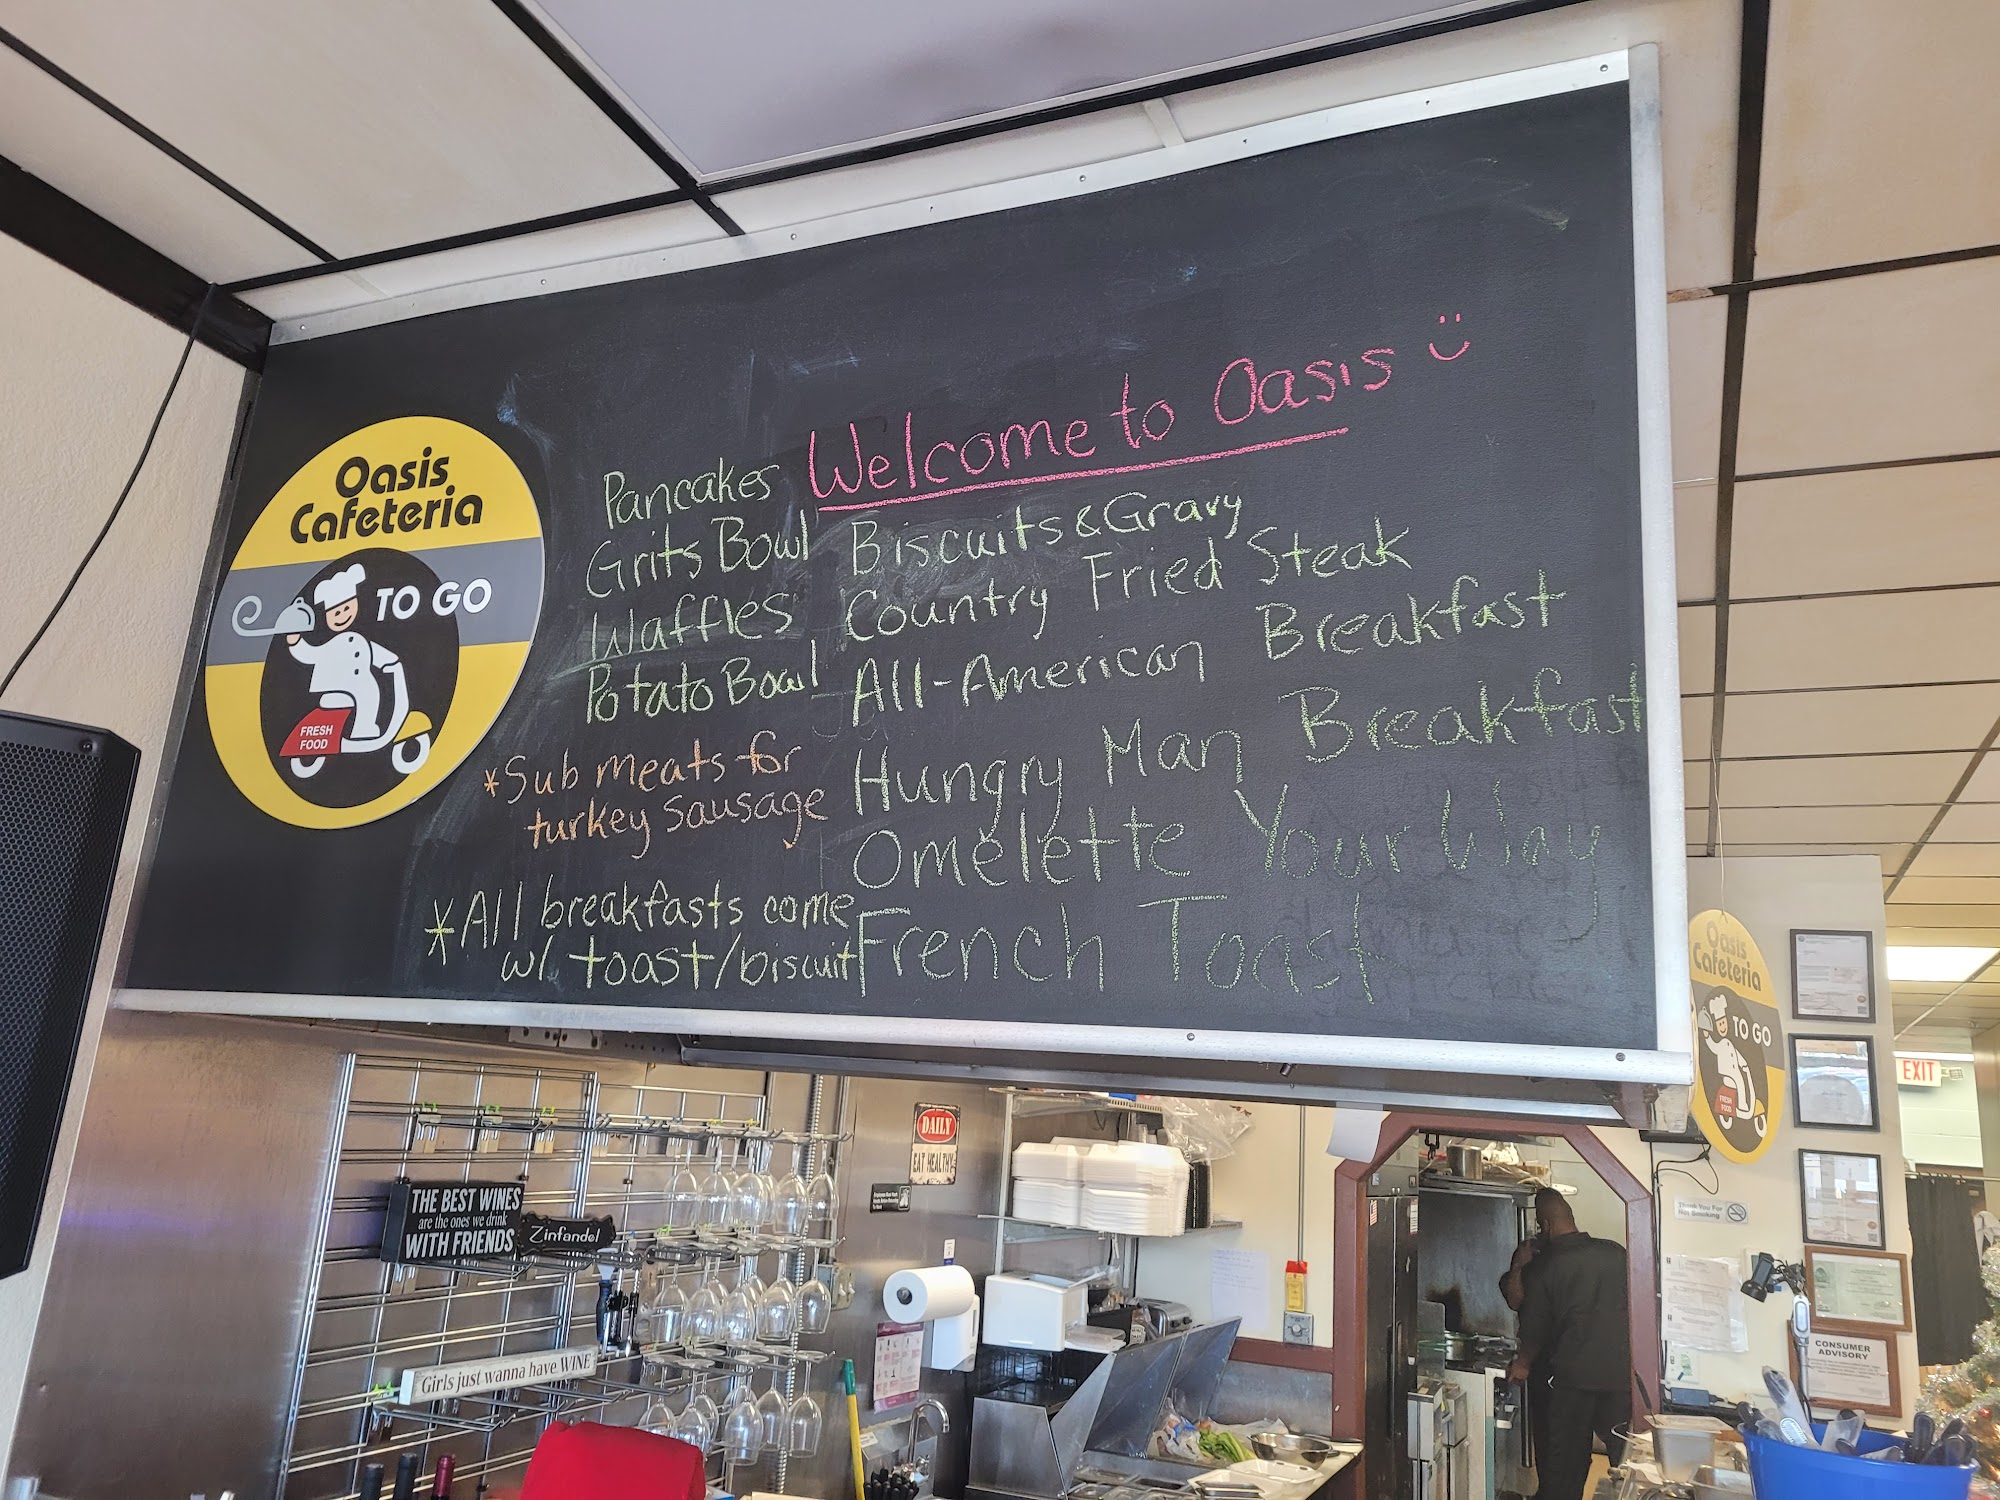 Welcome to Oasis
Pancakes
Grits Bowl
Waffles
Potato Bowl
*Sub meats for
turkey sausage
*All breakfasts come
w/ toast/biscuit
Biscuits & Gravy
Country Fried Steak
All-American Breakfast
Hungry Man Breakfast
Omelette Your Way
French Toast
Oasis
Cafeteria
TO GO
FRESH
FOOD
Oasis
Cafeteria
TO GO
FRESH
FOOD
EXIT
DAILY
EAT HEALTHY
THE BEST WINES
are the ones we drink
WITH FRIENDS
Zinfandel
Girls just wanna have WINE
Thank You For
Not Smoking
CONSUMER
ADVISORY